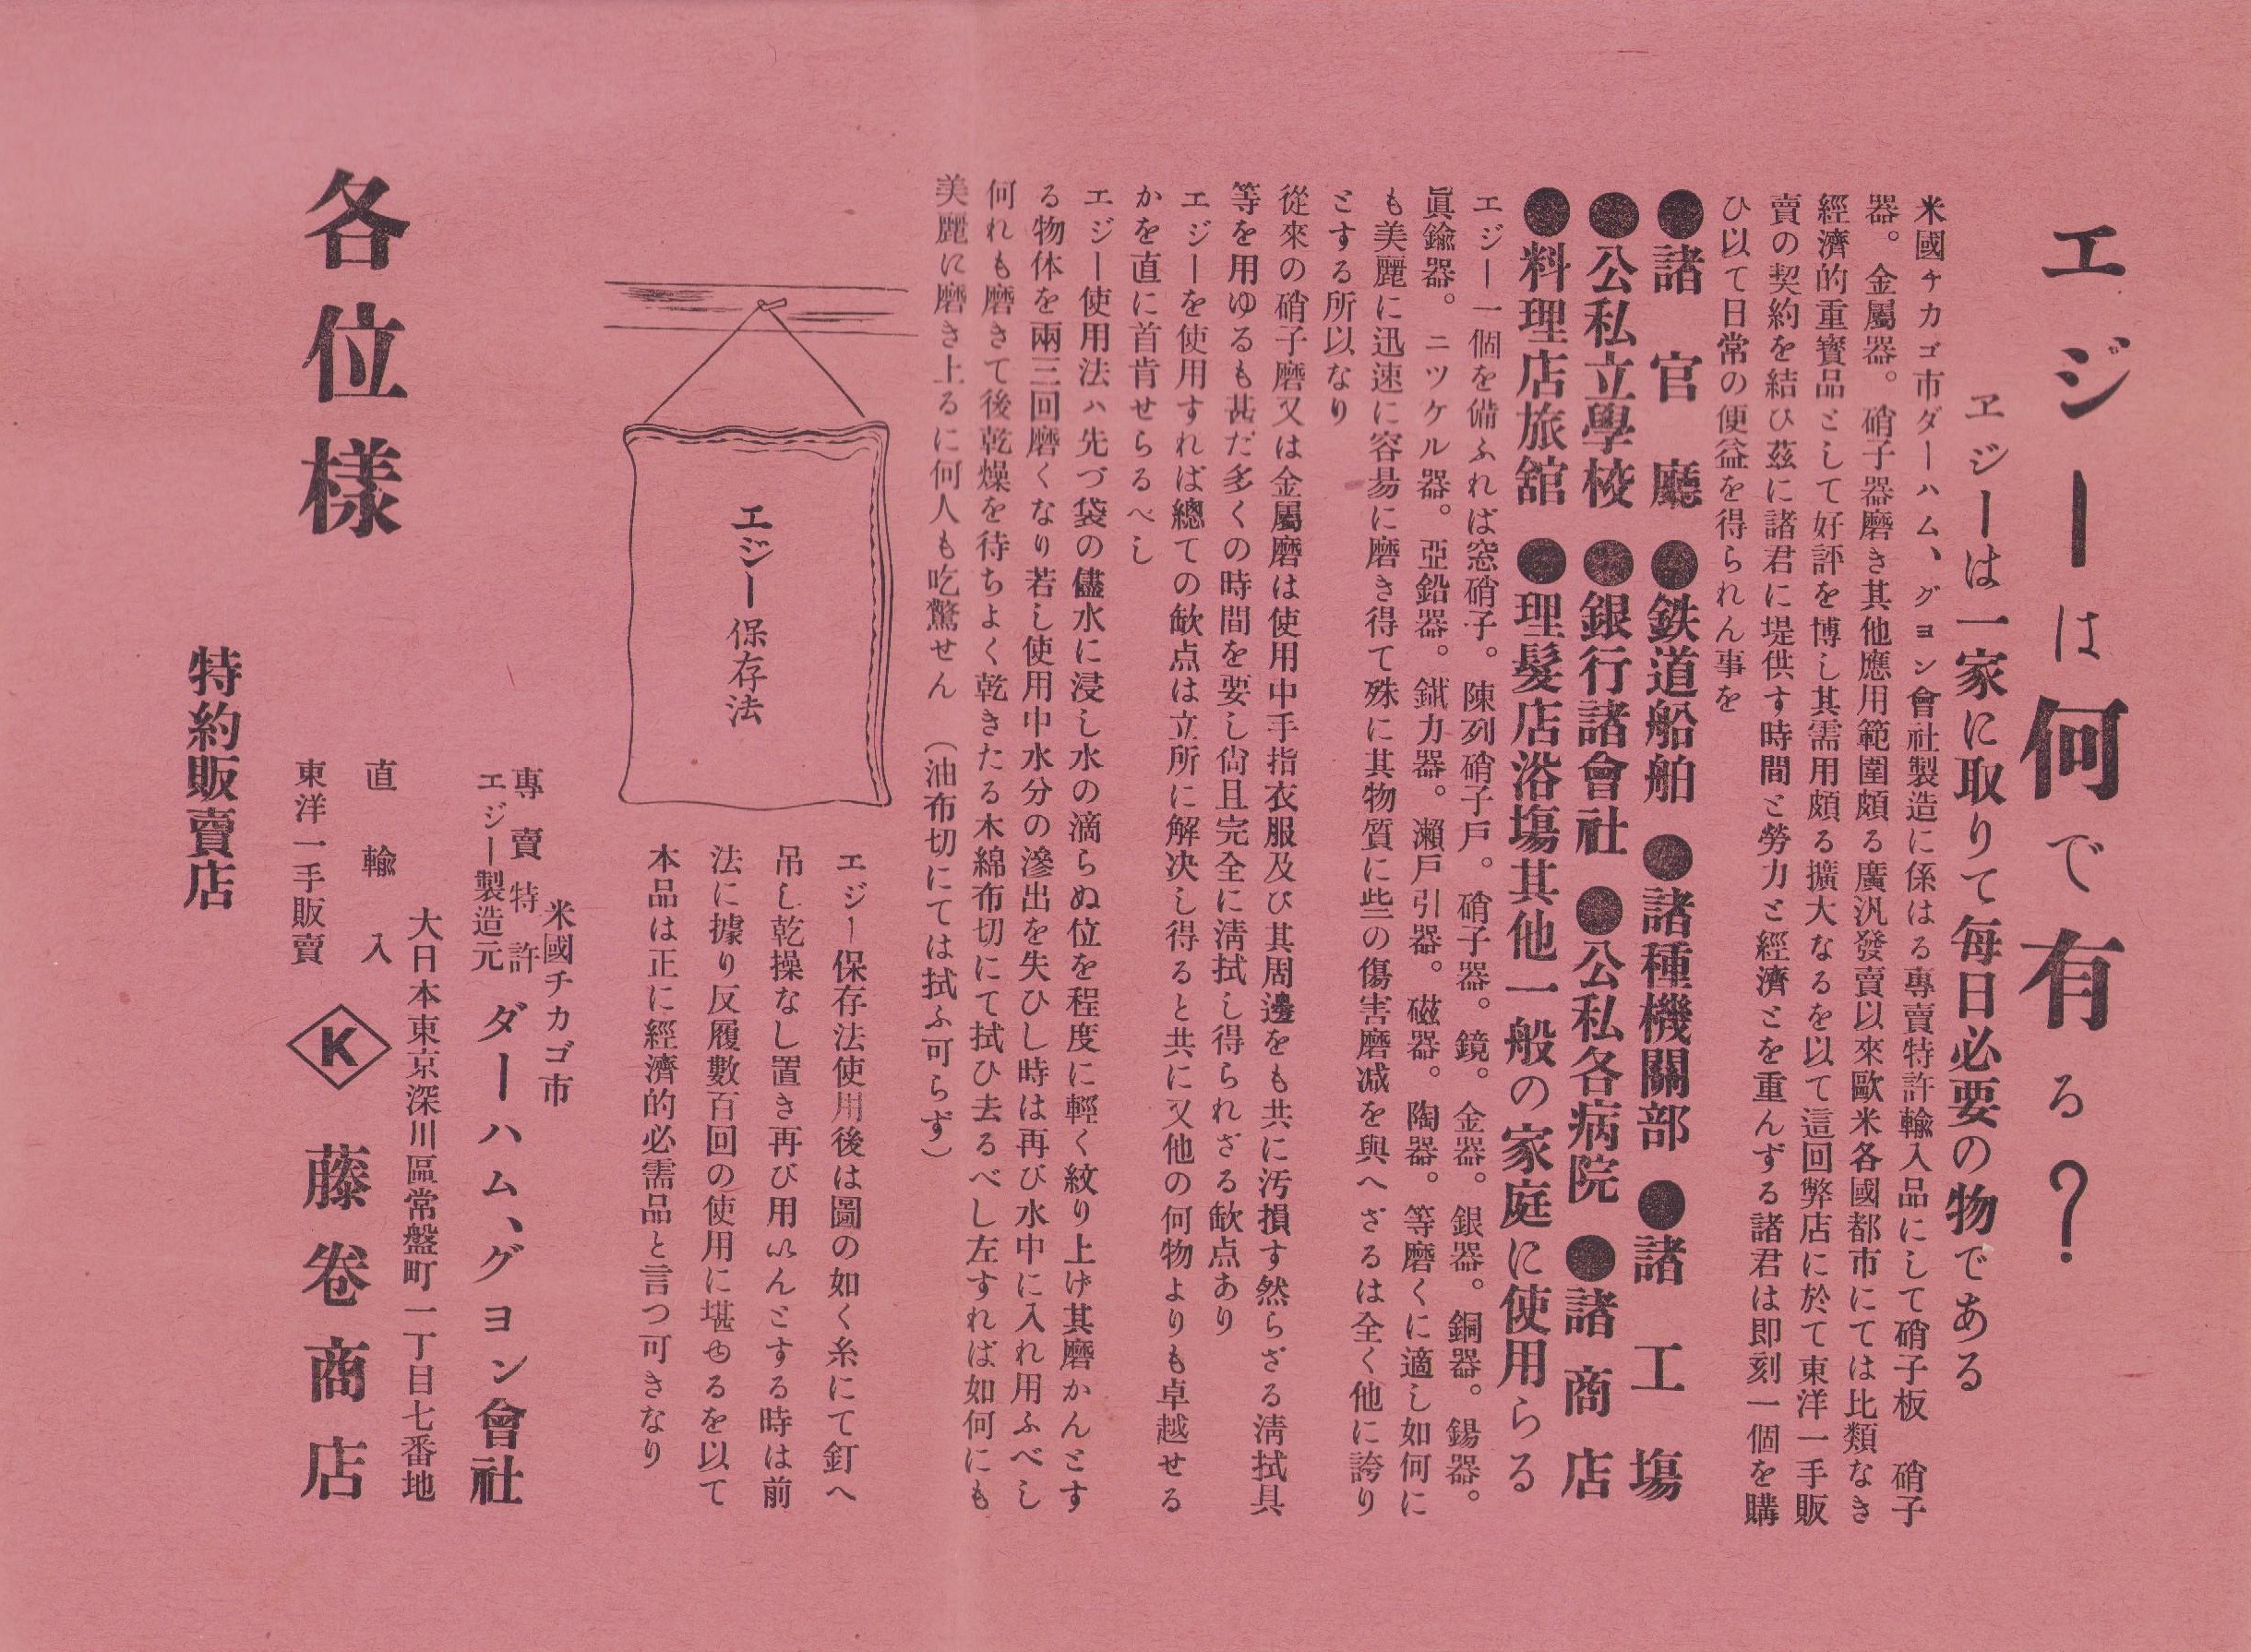 エジーは何で有る？
ヱジーは一家に取りて毎日必要の物である
米國チカゴ市ダーハム、グヨン會社製造に係はる專賣特許輸入品にして硝子板　硝子
器。金屬器。硝子器磨き其他應用範圍頗る廣汎發賣以來歐米各國都市にては比類なき
經濟的重寳品として好評を博し其需用頗る擴大なるを以て這回弊店に於て東洋一手販
賣の契約を結ひ茲に諸君に堤供す時間と勞力と經濟とを重んずる諸君は即刻一個を購
ひ以て日常の便益を得られん事を
●諸官廳　●鉄道船舶　●諸種機關部　●諸工塲
●公私立學校　●銀行諸會社　●公私各病院　●諸商店
●料理店旅舘　●理髮店浴塲其他一般の家庭に使用らる
エジー一個を備ふれば窓硝子。陳列硝子戶。硝子器。鏡。金器。銀器。銅器。錫器。
眞鍮器。ニツケル器。亞鉛器。鉄力器。瀨戶引器。磁器。陶器。等磨くに適し如何に
も美麗に迅速に容易に磨き得て殊に其物質に些の傷害磨减を與へざるは全く他に誇り
とする所以なり
從來の硝子磨又は金屬磨は使用中手指衣服及び其周邊をも共に汚損す然らざる淸拭具
等を用ゆるも甚だ多くの時間を要し尙且完全に淸拭し得られざる缼点あり
エジーを使用すれば總ての缼点は立所に解决し得ると共に又他の何物よりも卓越せる
かを直に首肯せらるべし
エジー使用法ハ先づ袋の儘水に浸し水の滴らぬ位を程度に輕く紋り上げ其磨かんとす
る物体を兩三回磨くなり若し使用中水分の滲出を失ひし時は再び水中に入れ用ふべし
何れも磨きて後乾燥を待ちよく乾きたる木綿布切にて拭ひ去るべし左すれば如何にも
美麗に磨き上るに何人も吃驚せん　（油布切にては拭ふ可らず）
エジー保存法
エジー保存法使用後は圖の如く糸にて釘へ
吊し乾操なし置き再び用いんとする時は前
法に據り反履數百回の使用に堪ゆるを以て
本品は正に經濟的必需品と言つ可きなり
米國チカゴ市
專賣特許
エジー製造元
ダーハム、グヨン會社
大日本東京深川區常盤町一丁目七番地
直輸入
東洋一手販賣
K
藤卷商店
各位樣
特約販賣店